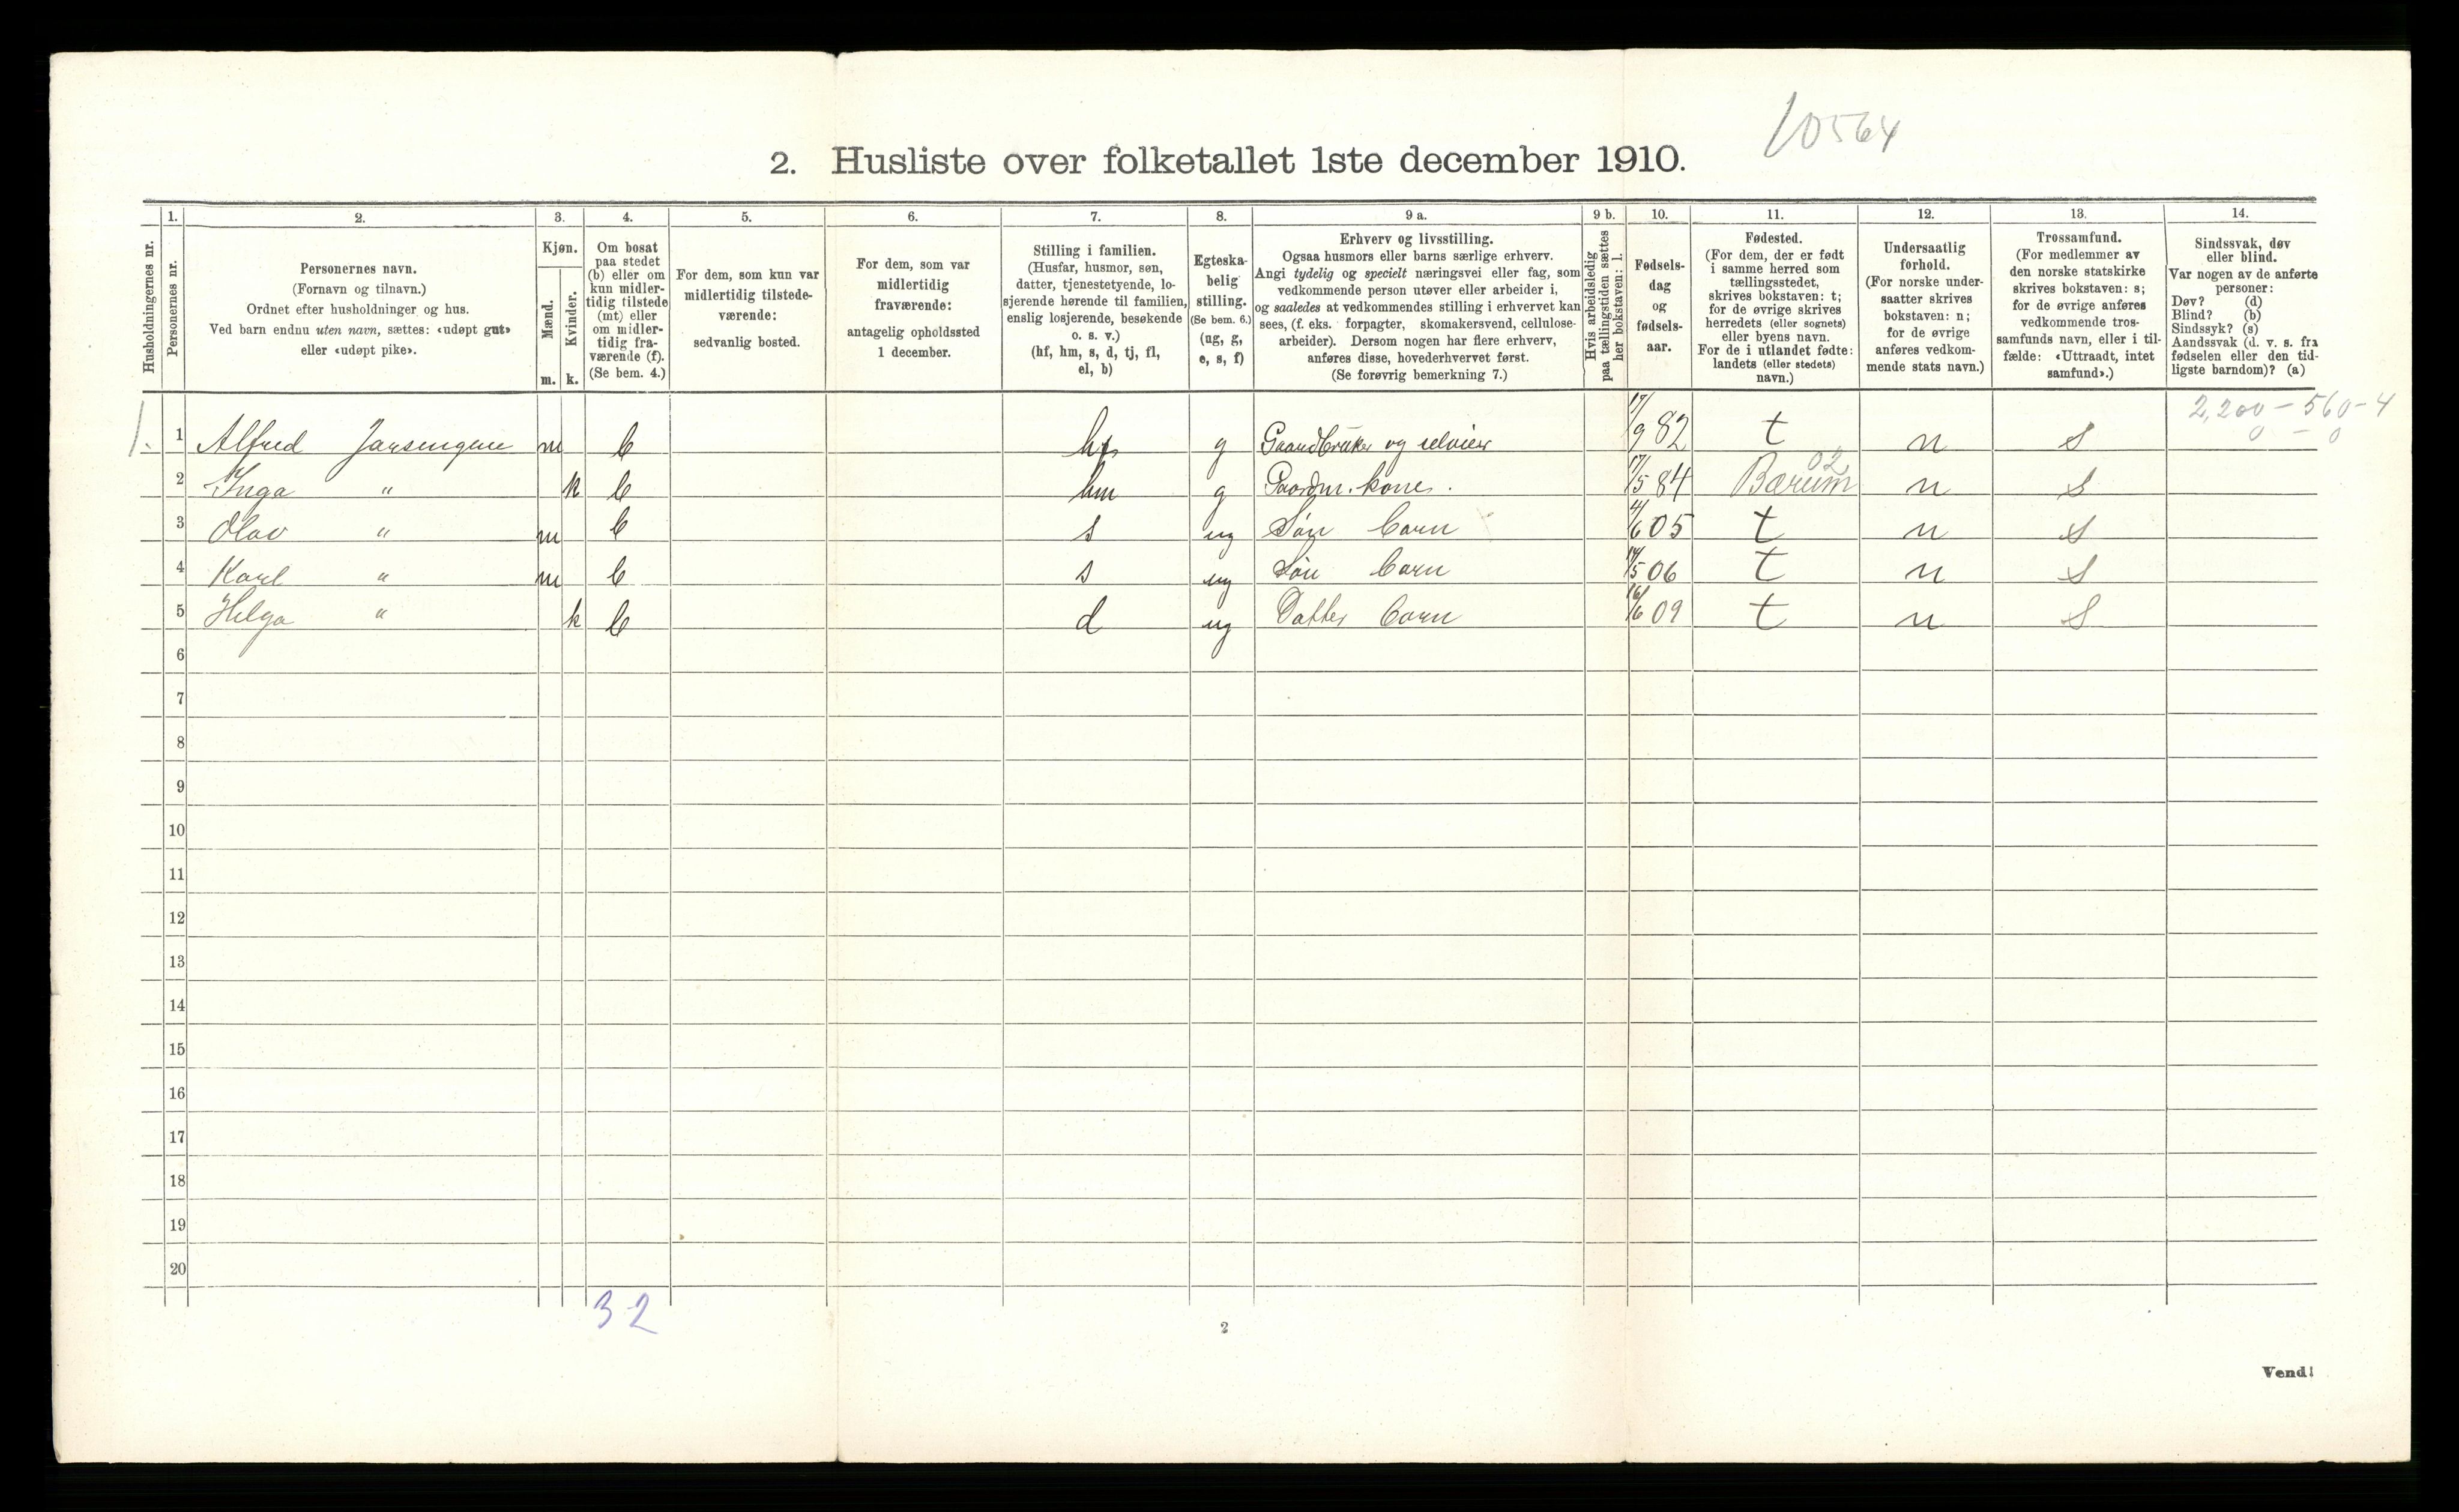 10564
2. Husliste over folketallet 1ste december 1910.
Husholdningernes nr.
1.
Personernes nr.
2.
Personernes navn.
(Fornavn og tilnavn.)
Ordnet efter husholdninger og hus.
Ved barn endnu uten navn, sættes: «udøpt gut»
eller «udøpt pike».
3.
Kjøn.
Mænd.
m.
Kvinder.
k.
4.
Om bosat
paa stedet
(b) eller om
kun midler-
tidig tilstede
(mt) eller
om midler-
tidig fra-
værende (f).
(Se bem. 4.)
5.
For dem, som kun var
midlertidig tilstede-
værende:
sedvanlig bosted.
6.
For dem, som var
midlertidig
fraværende:
antagelig opholdssted
1 december.
7.
Stilling i familien.
(Husfar, husmor, søn,
datter, tjenestetyende, lo-
sjerende hørende til familien,
enslig losjerende, besøkende
o. s. v.)
(hf, hm, s, d, tj, fl,
el, b)
8.
Egteska-
belig
stilling.
(Se bem. 6.)
(ug, g,
e, s, f)
9 a.
Erhverv og livsstilling.
Ogsaa husmors eller barns særlige erhverv.
Angi tydelig og specielt næringsvei eller fag, som
vedkommende person utøver eller arbeider i,
og saaledes at vedkommendes stilling i erhvervet kan
sees, (f. eks. forpagter, skomakersvend, cellulose-
arbeider). Dersom nogen har flere erhverv,
anføres disse, hovederhvervet først.
(Se forøvrig bemerkning 7.)
9 b.
Hvis arbeidsledig
paa tællingstiden sættes
her bokstaven: l.
10.
Fødsels-
dag
og
fødsels-
aar.
11.
Fødested.
(For dem, der er født
i samme herred som
tællingsstedet,
skrives bokstaven: t;
for de øvrige skrives
herredets (eller sognets)
eller byens navn.
For de i utlandet fødte:
landets (eller stedets)
navn.)
12.
Undersaatlig
forhold.
(For norske under-
saatter skrives
bokstaven: n;
for de øvrige
anføres vedkom-
mende stats navn.)
13.
Trossamfund.
(For medlemmer av
den norske statskirke
skrives bokstaven: s;
for de øvrige anføres
vedkommende tros-
samfunds navn, eller i til-
fælde: «Uttraadt, intet
samfund».)
14.
Sindssvak, døv
eller blind.
Var nogen av de anførte
personer:
Døv? (d)
Blind? (b)
Sindssyk? (s)
Aandssvak (d. v. s. fra
fødselen eller den tid-
ligste barndom)? (a)
2,200 - 560 - 4
0 - 0
1. 1 Alfred m b hf g Gaardbruker og selveier 17/9 82 t n s
02
2 Inga " k b hm g Gaardm. kone. 17/5 84 Bærum n s
3 Olav " m b s ug Søn barn 4/6 05 t n s
4 Karl " m b s ug Søn barn 14/5 06 t n s
5 Helga " k b d ug Datter barn 16/6 09 t n s
6
7
8
9
10
11
12
13
14
15
16
17
18
19
20
3 2
2
Vend!